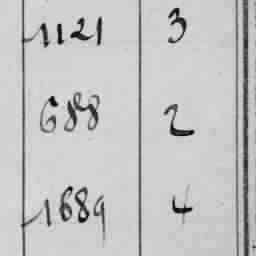 1121 3
688 2
1689 4